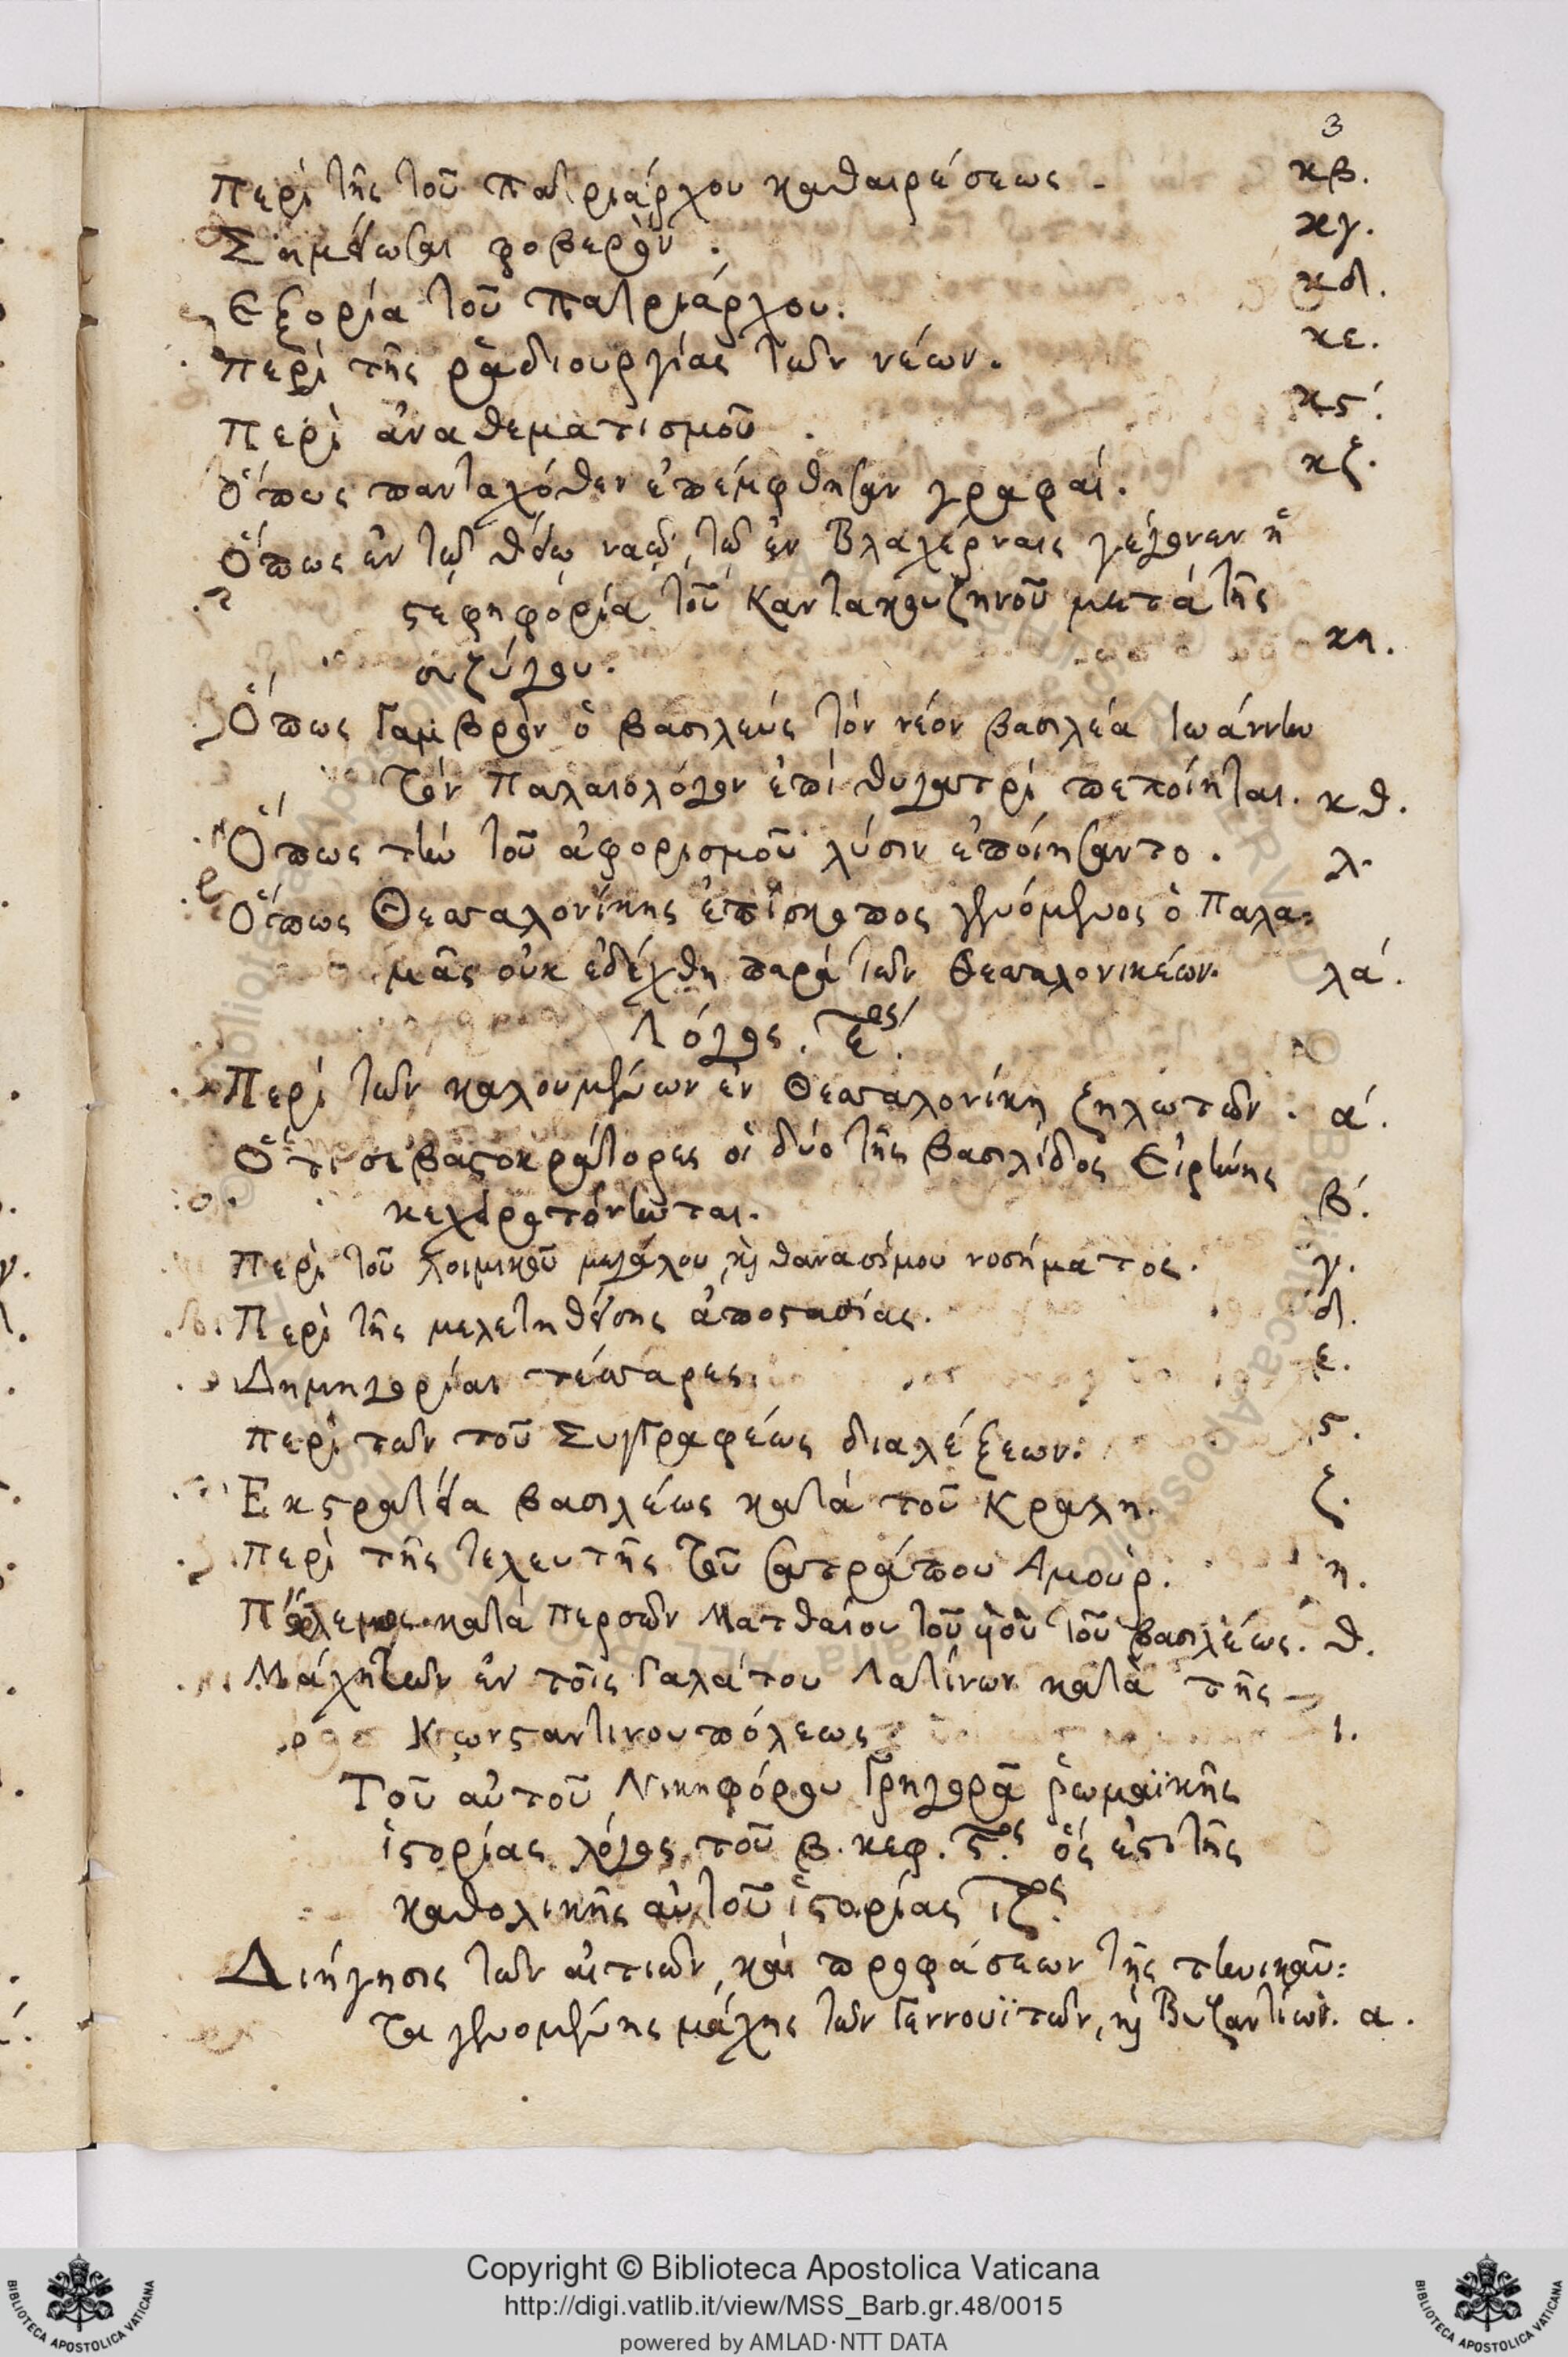 3
Περὶ τῆς τοῦ πατριάρχου καθαιρέσεως. κβ.
Σημείωσαι φοβερόν. κγ.
Εξορία τοῦ πατριάρχου. κδ.
Περὶ τῆς ῥᾳδιουργίας τῶν νέων. κε.
Περὶ ἀναθεματισμοῦ. κϛ΄.
Ὅπως πανταχόθεν ἐπέμφθησαν γραφαί. κζ.
Ὅπως ἐν τῷ θείῳ ναῷ, τῷ ἐν Βλαχέρναις γέγονεν ἡ
στεφηφορία τοῦ Καντακουζηνοῦ μετὰ τῆς
συζύγου. κη.
Ὅπως γαμβρὸν ὁ βασιλεύς τόν νέον βασιλέα Ιωάννην
τόν Παλαιολόγον ἐπί θυγατρί πεποίηται. κθ.
Ὅπως τὴν τοῦ ἀφορισμοῦ λύσιν ἐποίησαντο. λ.
Ὅπως Θεσσαλονίκης ἐπίσκοπος γενόμενος ὁ Παλα=
μᾶς οὐκ ἐδέχθη παρὰ τῶν Θεσσαλονικέων. λά.
Λόγος. ε΄ος.
Περὶ τῶν καλουμένων ἐν Θεσσαλονίκη ζηλωτῶν. ά.
Ὅτι σεβαστοκράτορες οἱ δύο τῆς βασιλίδος Εἰρήνης
κεχειροτόνηνται. β΄.
Περὶ τοῦ λοιμικοῦ μεγάλου, καὶ θανασίμου νοσήματος. γ.
Περὶ τῆς μελετηθείσης ἀποστασίας. δ.
Δημηγορίαι τέσσαρες. ε.
Περὶ τῶν τοῦ Συγγραφέως διαλέξεων. ϛ.
Εκστρατεία βασιλέως κατὰ τοῦ Κράλη. ζ.
Περὶ τῆς τελευτῆς τοῦ σατράπου Αμούρ. η.
Πόλεμος κατὰ Περσῶν Ματθαίου τοῦ υἱοῦ τοῦ βασιλέως. θ.
Μάχη τῶν ἐν τοῖς Γαλάτου Λατίνων κατὰ τῆς
Κωνσταντινουπόλεως ι.
Τοῦ αὐτοῦ Νικηφόρου Γρηγορᾶ ῥωμαϊκῆς
ἱστορίας λόγος τοῦ β. κεφ. ϛ.ος ὅς ἐστι τῆς
καθολικῆς αὐτοῦ ἱστορίας ιζος.
Διήγησις τῶν αἰτιῶν, καὶ προφάσεων τῆς τηνικαῦ=
τα γενομένης μάχης τῶν Γεννουϊτῶν, καὶ Βυζαντίων. α.
© Biblioteca Apostolica Vaticana
Copyright © Biblioteca Apostolica Vaticana
http://digi.vatlib.it/view/MSS_Barb.gr.48/0015
powered by AMLAD·NTT DATA
BIBLIOTECA APOSTOLICA VATICANA
BIBLIOTECA APOSTOLICA VATICANA